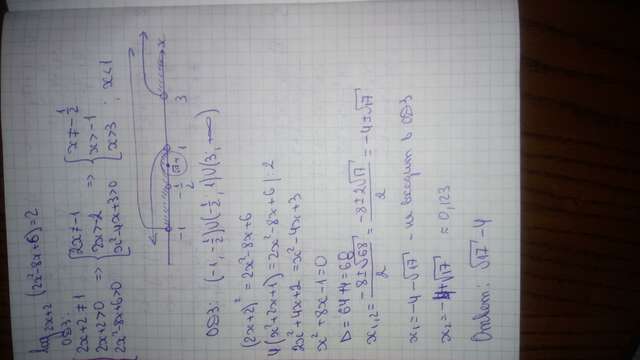 log₂ₓ₊₂ (2x²-8x+6)=2
ОДЗ:
{2x+2≠1 {2x≠-1 {x≠-1/2
{2x+2>0 => {2x>-2 => {x>-1
{2x²-8x+6>0 {x²-4x+3>0 [x>3 ; x<1
-1 -1/2 √17-4 1 3 x
ОДЗ: (-1,-1/2)∪(-1/2;1)∪(3;+∞)
(2x+2)²=2x²-8x+6
4(x²+2x+1)=2x²-8x+6 |:2
2x²+4x+2=x²-4x+3
x²+8x-1=0
D=64+4=68
x₁,₂=(-8±√68)/2=(-8±2√17)/2=-4±√17
x₁=-4-√17 - не входит в ОДЗ
x₂=-4+√17 ≈0,123
Ответ: √17-4